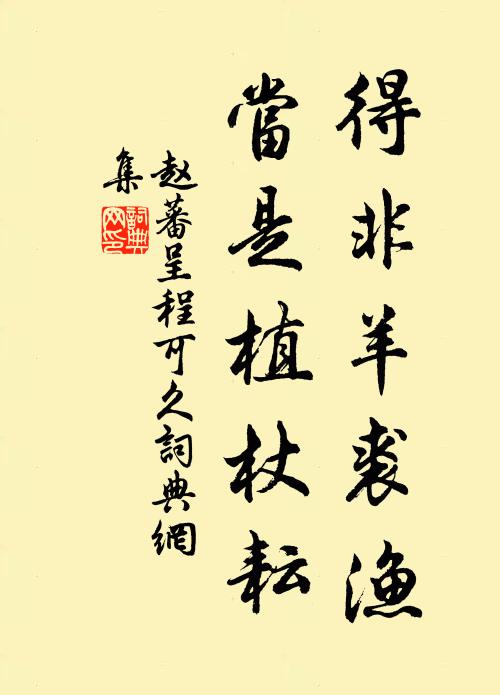 得非羊裘渔
當是植杖耘
赵蕃呈程可久詞典網
集
詞典
网印